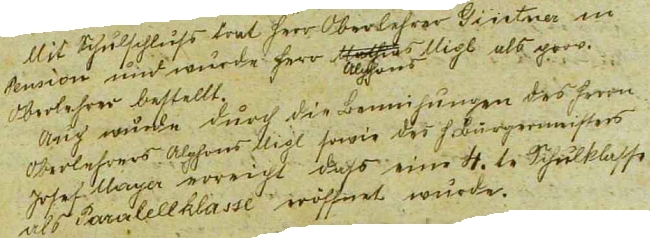 Mit Schulschluß trat Herr Oberlehrer Güntner in
Pension und wurde Herr Mathias Migl als prov.
Alphons
Oberlehrer bestellt.
Auch wurde durch die Bemühungen des Herrn
Oberlehrers Alphons Migl sowie des H. Bürgermeisters
Josef Mayer erreicht daß eine 4. te Schulklasse
als Paralellklasse eröffnet wurde.